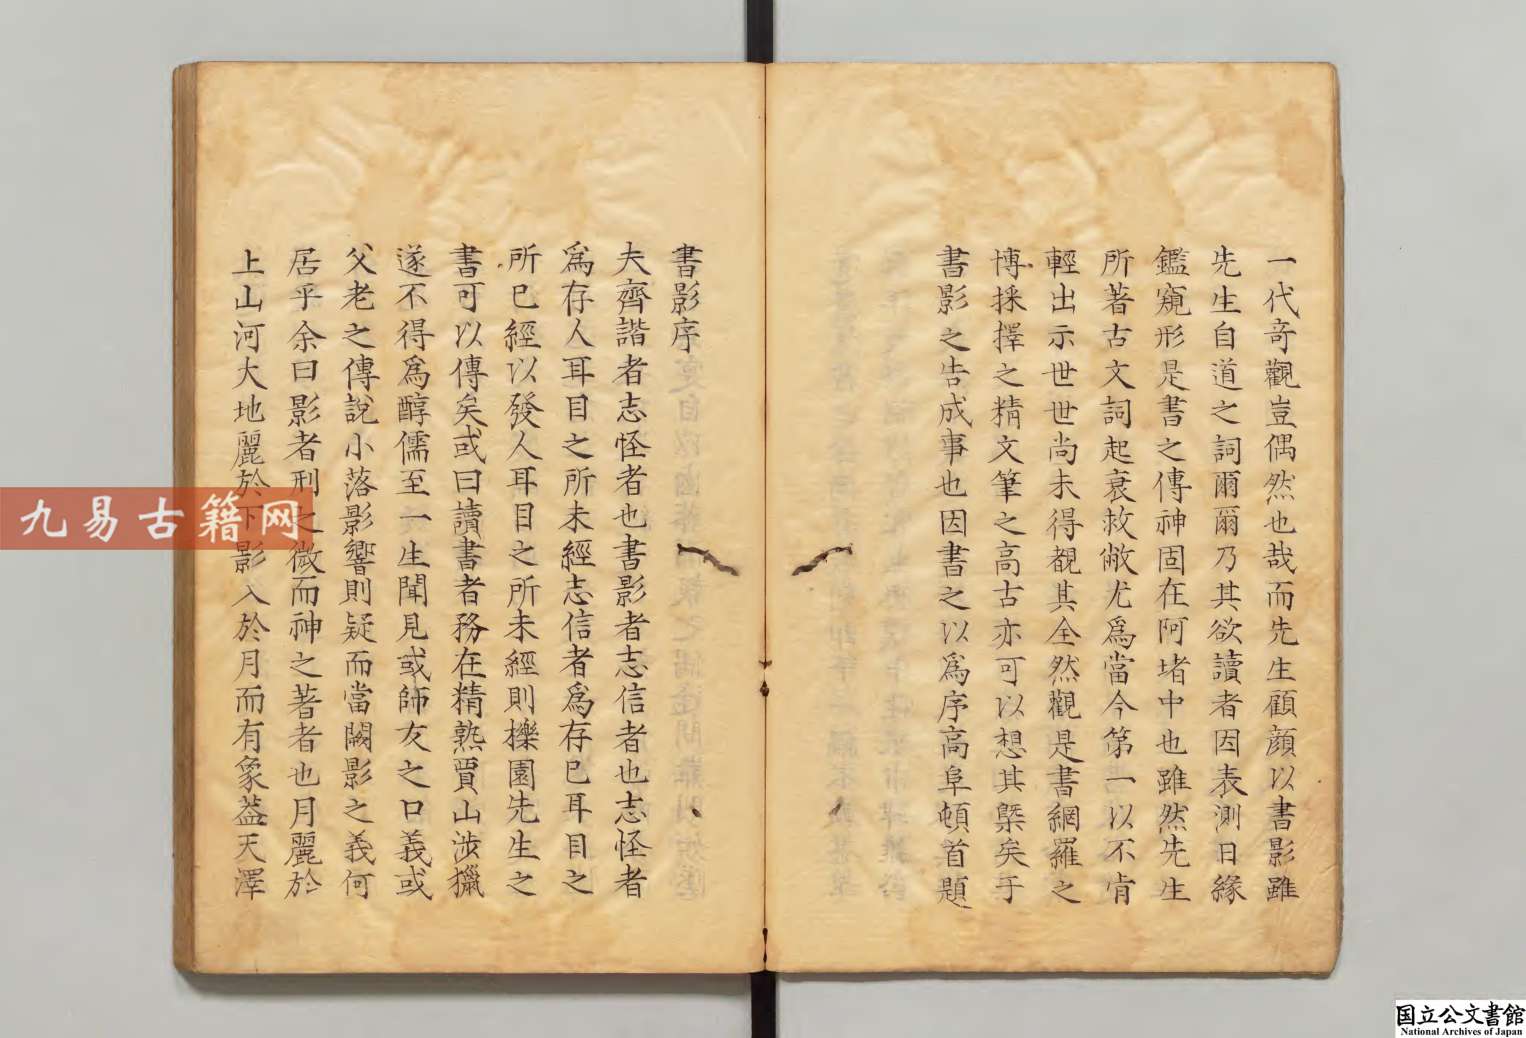 一代竒觀豈偶然也哉而先生顧顔以書影雖
先生自道之詞爾爾乃其欲讀者因表測日緣
鑑窺形是書之傳神固在阿堵中也雖然先生
所著古文詞起衰救敝尤爲當今第一以不肯
輕出示世世尚未得覩其全然觀是書網羅之
博採擇之精文筆之高古亦可以想其槩矣于
書影之告成事也因書之以爲序高阜頓首題
書影序
夫齊諧者志怪者也書影者志信者也志怪者
爲存人耳目之所未經志信者爲存已耳目之
所已經以發人耳目之所未經則櫟園先生之
書可以傳矣或曰讀書者務在精熟賈山涉獵
遂不得爲醇儒至一生聞見或師友之口義或
父老之傳說小落影響則疑而當闕影之義何
居乎余曰影者刑之微而神之著者也月麗於
上山河大地麗於下影入於月而有象葢天澤
九易古籍网
国立公文書館
National Archives of Japan